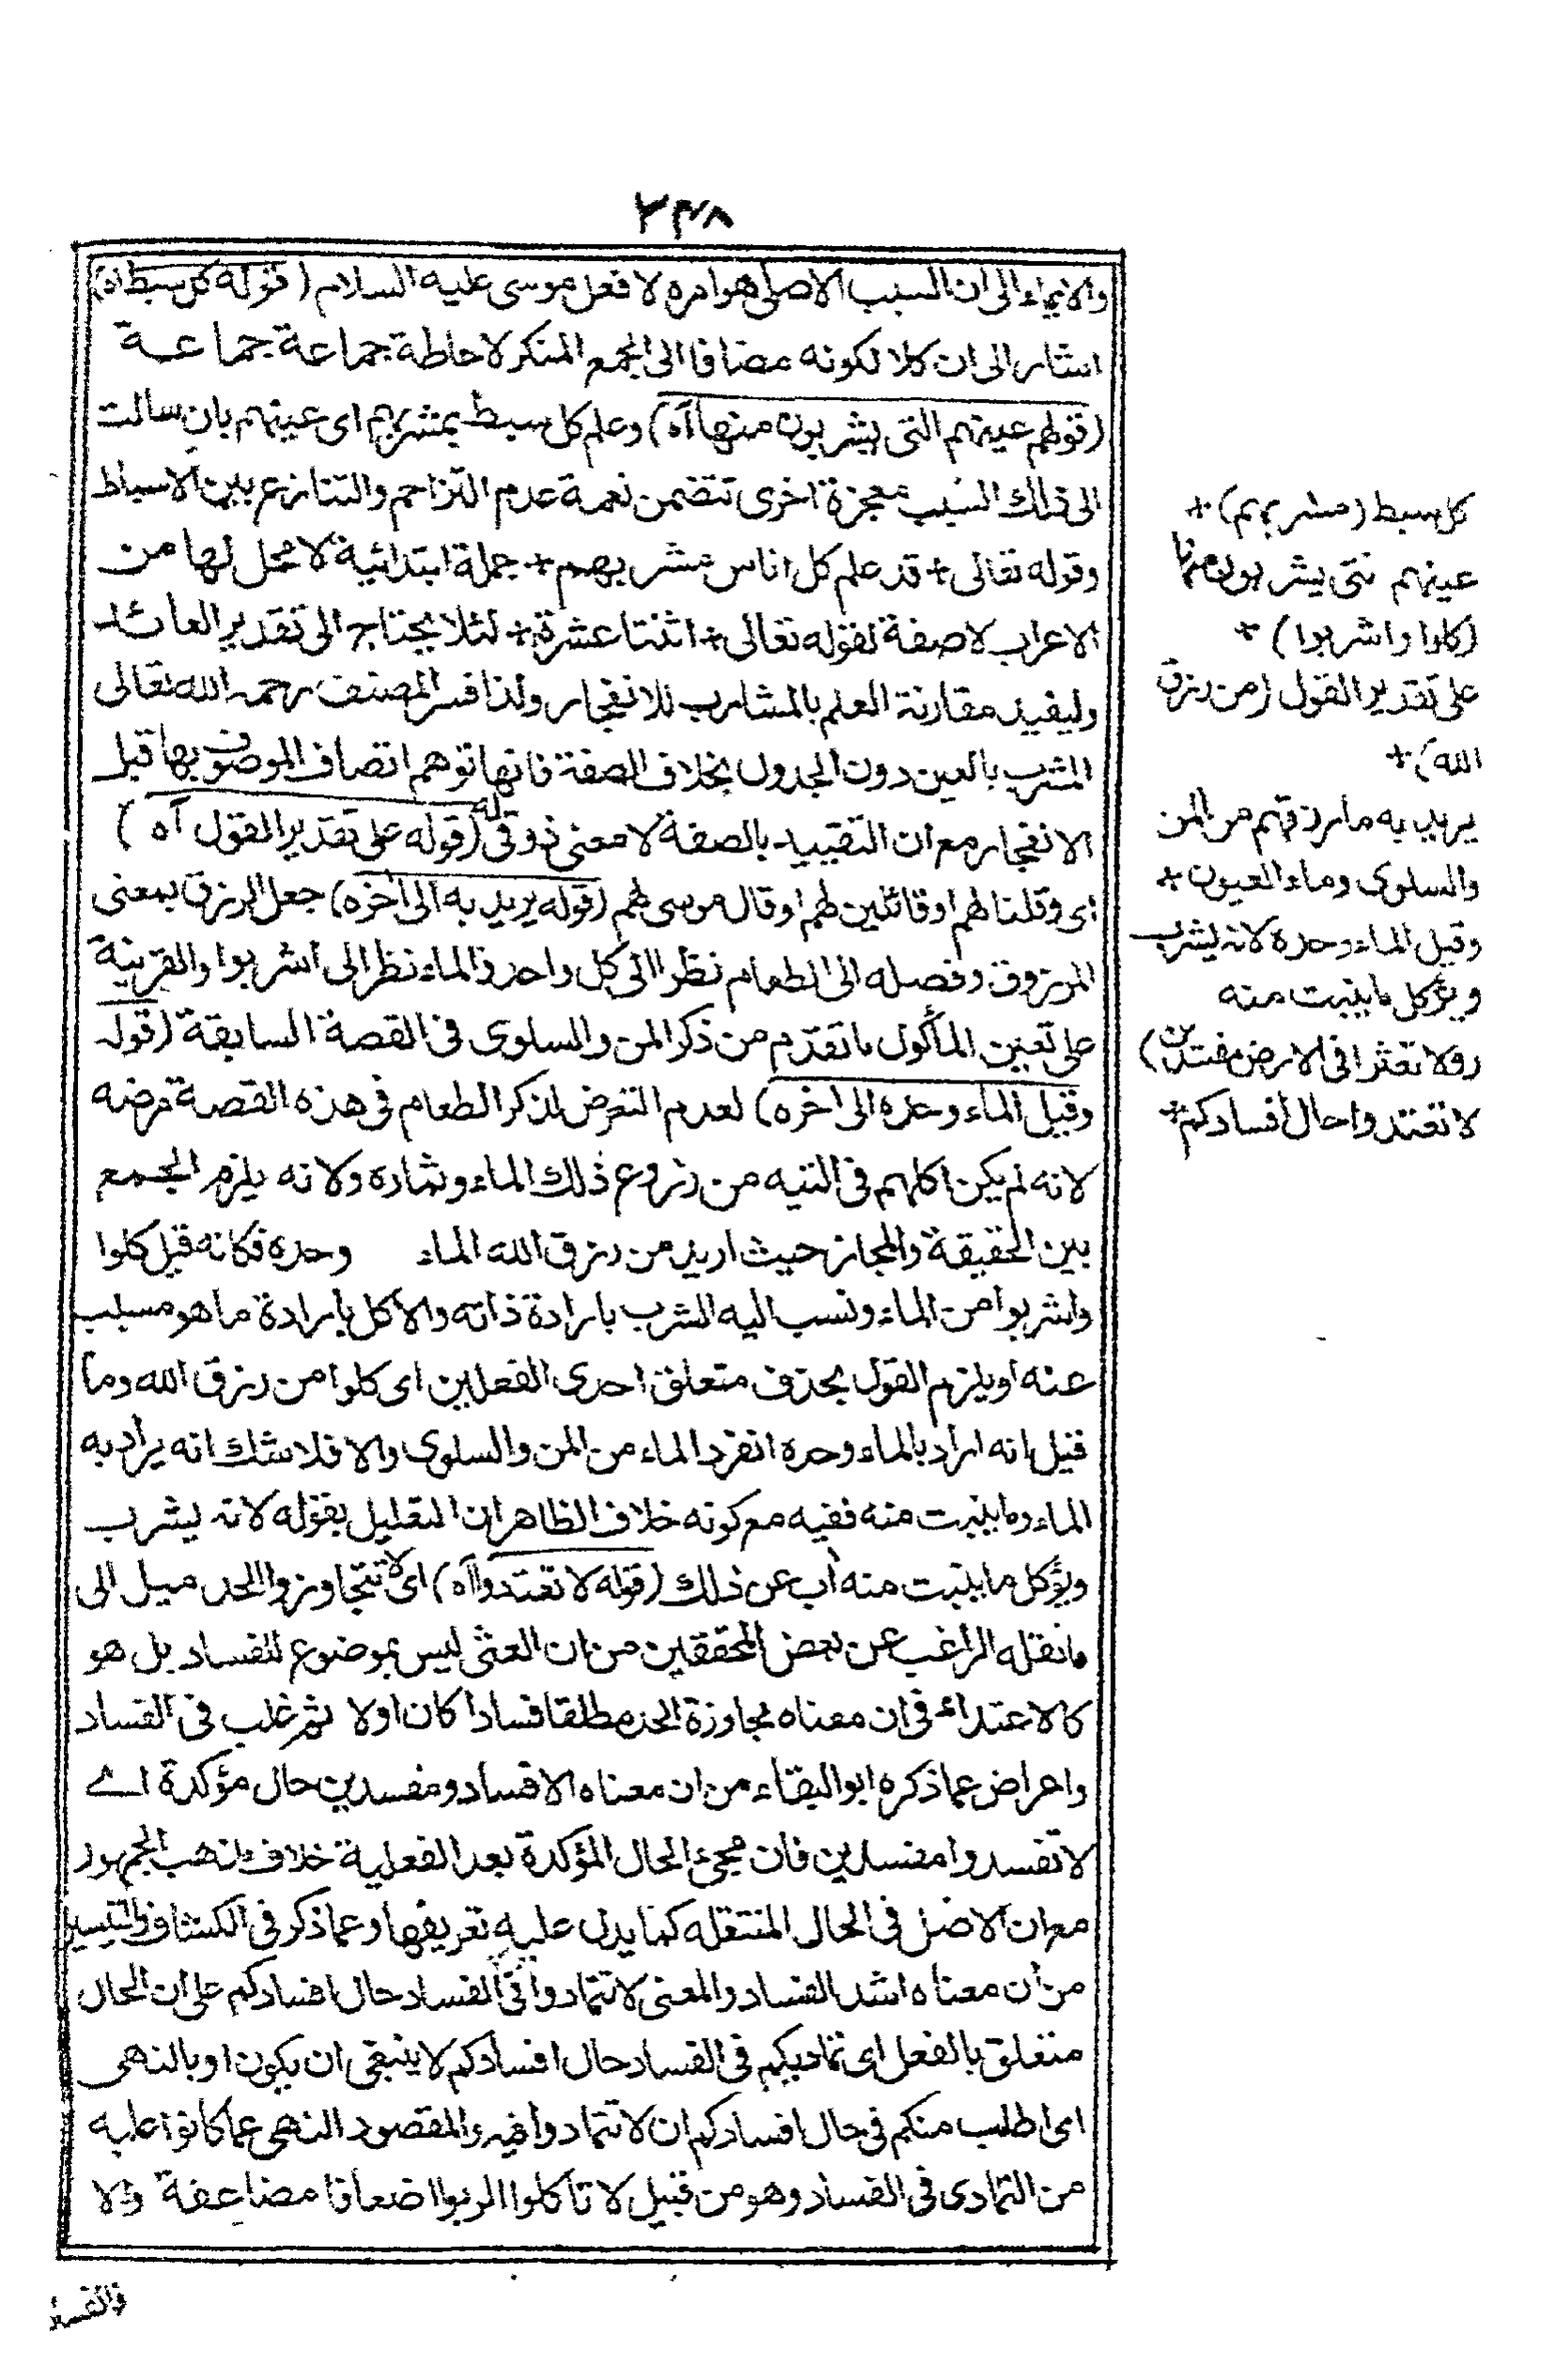 ٣٣٨
والايماء الى ان السبب الاصلى هو امره لا فعل موسى عليه السلام (قوله كل سبط اه)
اشار الى ان كلا لكونه مضافا الى الجمع المنكر لاحاطة جماعة جماعة
(قولهم عينهم التى يشربون منها اه) وعلم كل سبط بمشربهم اى عينهم بان سالت
الى ذلك السبب معجزة اخرى تتضمن نعمة عدم التزاحم والتنازع بين الاسباط
وقوله تعالى + قد علم كل اناس مشربهم + جملة ابتدائية لا محل لها من
الاعراب لا صفة لقوله تعالى + اثنتا عشرة + لئلا يحتاج الى تقدير العائد
وليفيد مقارنة العلم بالمشارب للانفجار ولذا فسر المصنف رحمه الله تعالى
المشرب بالعين دون الجدول بخلاف الصفة فانها توهم اتصاف الموصوف بها قبل
الانفجار مع ان التقييد بالصفة لا معنى ذوقى له (قوله على تقدير القول آه)
اى وقلنا لهم او قائلين لهم او قال موسى لهم (قوله يريد به الى اخره) جعل الرزق بمعنى
المرزوق وفصله الى الطعام نظرا الى كل واحد والماء نظر الى اشربوا والقرينة
على تعيين المأكول ما تقدم من ذكر المن والسلوى فى القصة السابقة (قوله
وقيل الماء وحده الى اخره) لعدم التعرض لذكر الطعام فى هذه القصة مرضه
لانه لم يكن اكلهم فى التيه من زروع ذلك الماء وثماره ولانه يلزم الجمع
بين الحقيقة والمجاز حيث اريد من رزق الله الماء وحده فكانه قيل كلوا
واشربوا من الماء ونسب اليه الشرب بارادة ذاته والاكل بارادة ما هو مسبب
عنه او يلزم القول بحذف متعلق احدى الفعلين اى كلوا من رزق الله وما
قيل انه اراد بالماء وحده انفرد الماء من المن والسلوى والا فلا شك انه يراد به
الماء وما ينبت منه ففيه مع كونه خلاف الظاهر ان التعليل بقوله لانه يشرب
ويؤكل ما ينبت منه آب عن ذلك (قوله لا تعتدوا اه) اى لا تتجاوزوا الحد ميل الى
ما نقله الراغب عن بعض المحققين من ان العثى ليس بموضوع للفساد بل هو
كالاعتداء فى ان معناه مجاوزة الحد مطلقا فسادا كان اولا ثم غلب فى الفساد
واعراض عما ذكره ابو البقاء من ان معناه الافساد ومفسدين حال مؤكدة اے
لا تفسدوا مفسدين فان مجئ الحال المؤكدة بعد الفعلية خلاف مذهب الجمهور
مع ان الاصل فى الحال المنتقله كما يدل عليه تعريفها وعما ذكر فى الكشاف والتيسير
من أن معناه اشد الفساد والمعنى لا تتمادوا فى الفساد حال افسادكم على ان الحال
متعلق بالفعل اى تماديكم فى الفساد حال افسادكم لا ينبغى ان يكون او بالنهى
اى اطلب منكم فى حال افسادكم ان لا تتمادوا فيه والمقصود النهى عما كانوا عليه
من التمادى فى الفساد وهو من قبيل لا تأكلوا الربوا اضعافا مضاعفة والا
كل سبط (مشربهم) +
عينهم تتى يشربون منها
(كلوا واشربوا) +
على تقدير القول (من رزق
الله) +
يريد به ما رزقهم من المن
والسلوى وماء العيون +
وقيل الماء وحده لانه يشرب
ويؤكل ما ينبت منه
(ولا تعثوا فى الارض مفسدين)
لا تعتدوا حال افسادكم +
فالفساد